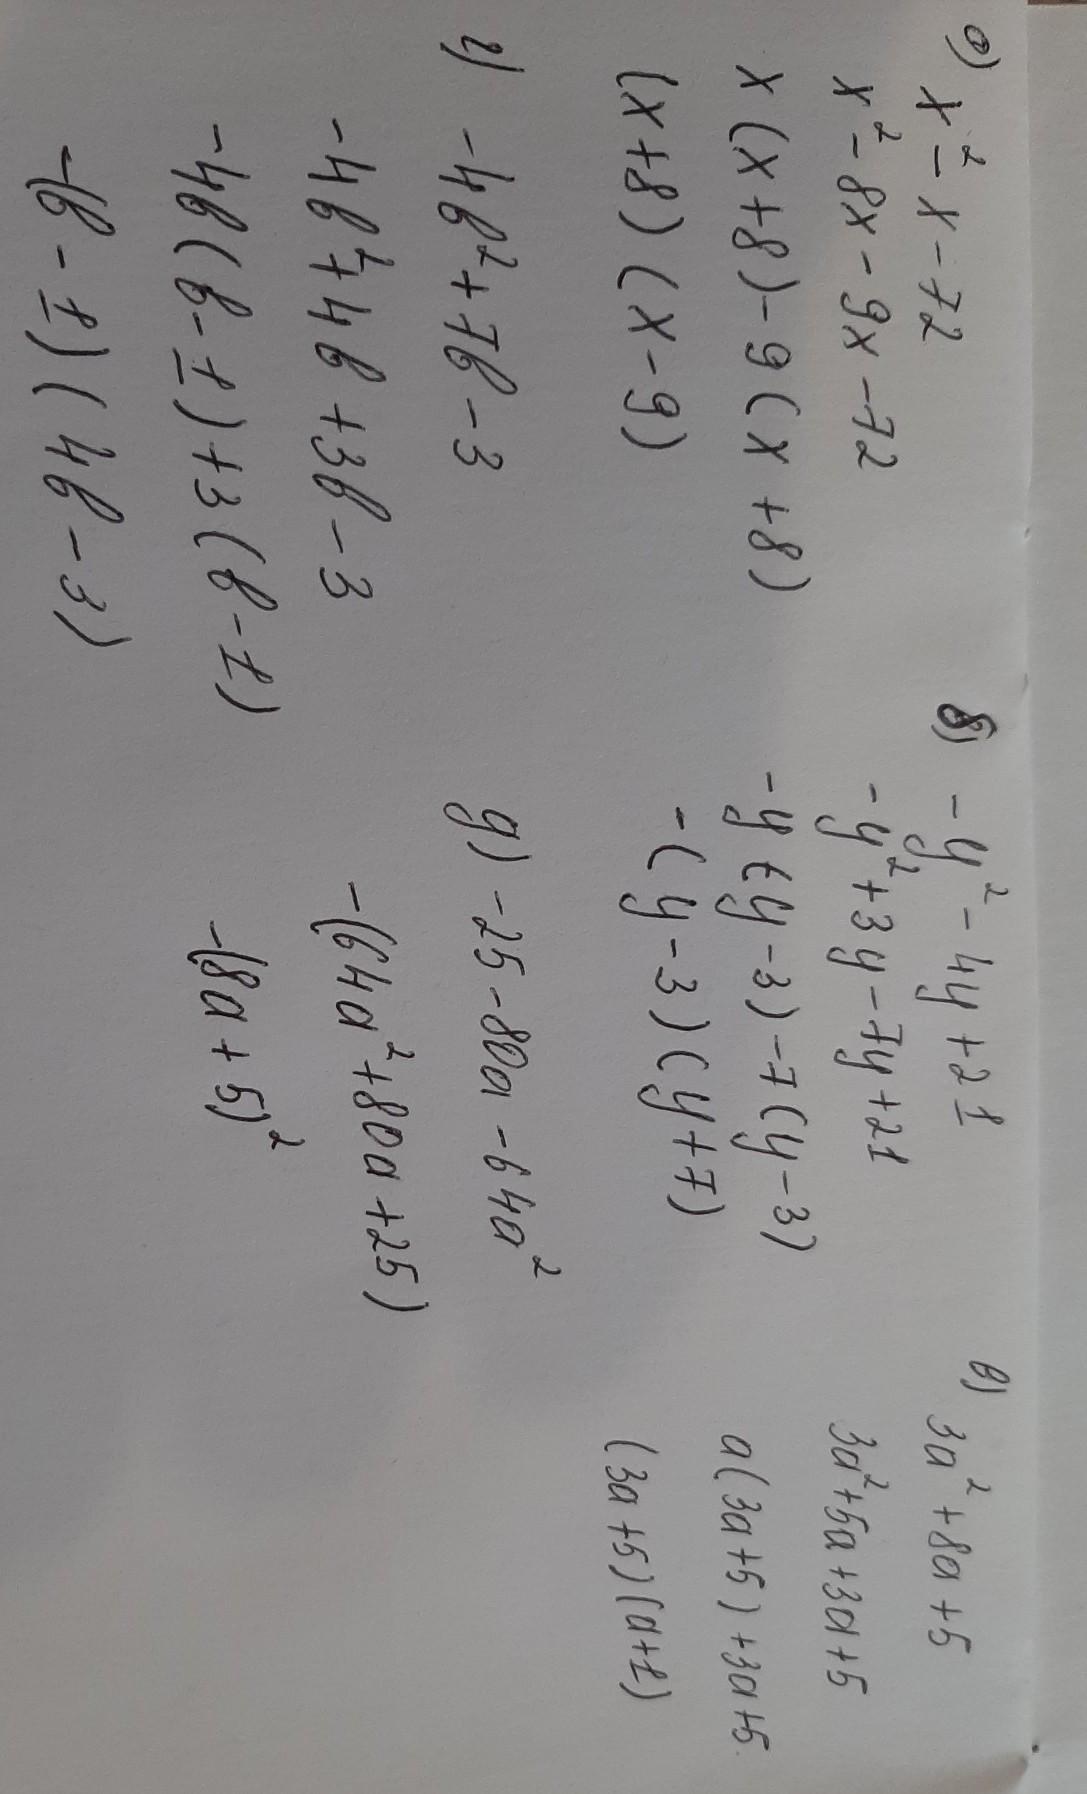 а) x² - x - 72
x² - 8x - 9x - 72
x(x+8) - 9(x+8)
(x+8)(x-9)
б) -y² - 4y + 21
-y² + 3y - 7y + 21
-y(y-3) - 7(y-3)
-(y-3)(y+7)
в) 3a² + 8a + 5
3a² + 5a + 3a + 5
a(3a+5) + 3a+5
(3a+5)(a+1)
г) -4b² + 7b - 3
-4b² + 4b + 3b - 3
-4b(b-1) + 3(b-1)
-(b-1)(4b-3)
д) -25 - 80a - 64a²
-(64a² + 80a + 25)
-(8a + 5)²